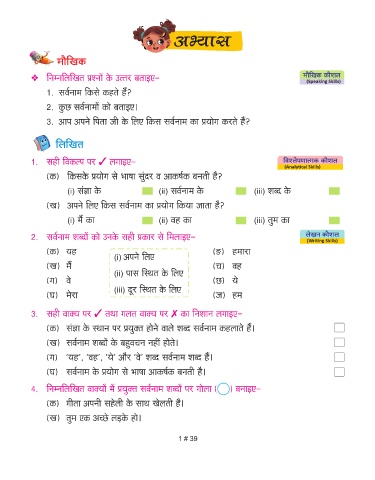 अभ्यास
मौखिक
❖ निम्नलिखित प्रश्नों के उत्तर बताइए–
मौखिक कौशल
(Speaking Skills)
1. सर्वनाम किसे कहते हैं?
2. कुछ सर्वनामों को बताइए।
3. आप अपने पिता जी के लिए किस सर्वनाम का प्रयोग करते हैं?
लिखित
1. सही विकल्प पर ✓ लगाइए–
विश्लेषणात्मक कौशल
(Analytical Skills)
(क) किसके प्रयोग से भाषा सुंदर व आकर्षक बनती है?
(i) संज्ञा के (ii) सर्वनाम के (iii) शब्द के
(ख) अपने लिए किस सर्वनाम का प्रयोग किया जाता है?
(i) मैं का (ii) वह का (iii) तुम का
2. सर्वनाम शब्दों को उनके सही प्रकार से मिलाइए–
लेखन कौशल
(Writing Skills)
(क) यह (i) अपने लिए (ङ) हमारा
(ख) मैं (ii) पास स्थित के लिए (च) वह
(ग) वे (iii) दूर स्थित के लिए (छ) ये
(घ) मेरा (ज) हम
3. सही वाक्य पर ✓ तथा गलत वाक्य पर ✗ का निशान लगाइए–
(क) संज्ञा के स्थान पर प्रयुक्त होने वाले शब्द सर्वनाम कहलाते हैं।
(ख) सर्वनाम शब्दों के बहुवचन नहीं होते।
(ग) 'यह', 'वह', 'ये' और 'वे' शब्द सर्वनाम शब्द हैं।
(घ) सर्वनाम के प्रयोग से भाषा आकर्षक बनती है।
4. निम्नलिखित वाक्यों में प्रयुक्त सर्वनाम शब्दों पर गोला ( ) बनाइए–
(क) गीता अपनी सहेली के साथ खेलती है।
(ख) तुम एक अच्छे लड़के हो।
1 # 39